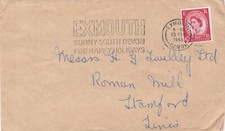 EXMOUTH
SUNNY SOUTH DEVON
FOR HAPPY HOLIDAYS
EXMOUTH
DEVON
Messrs
Ltd
Roman Mill
Stamford
Lincs